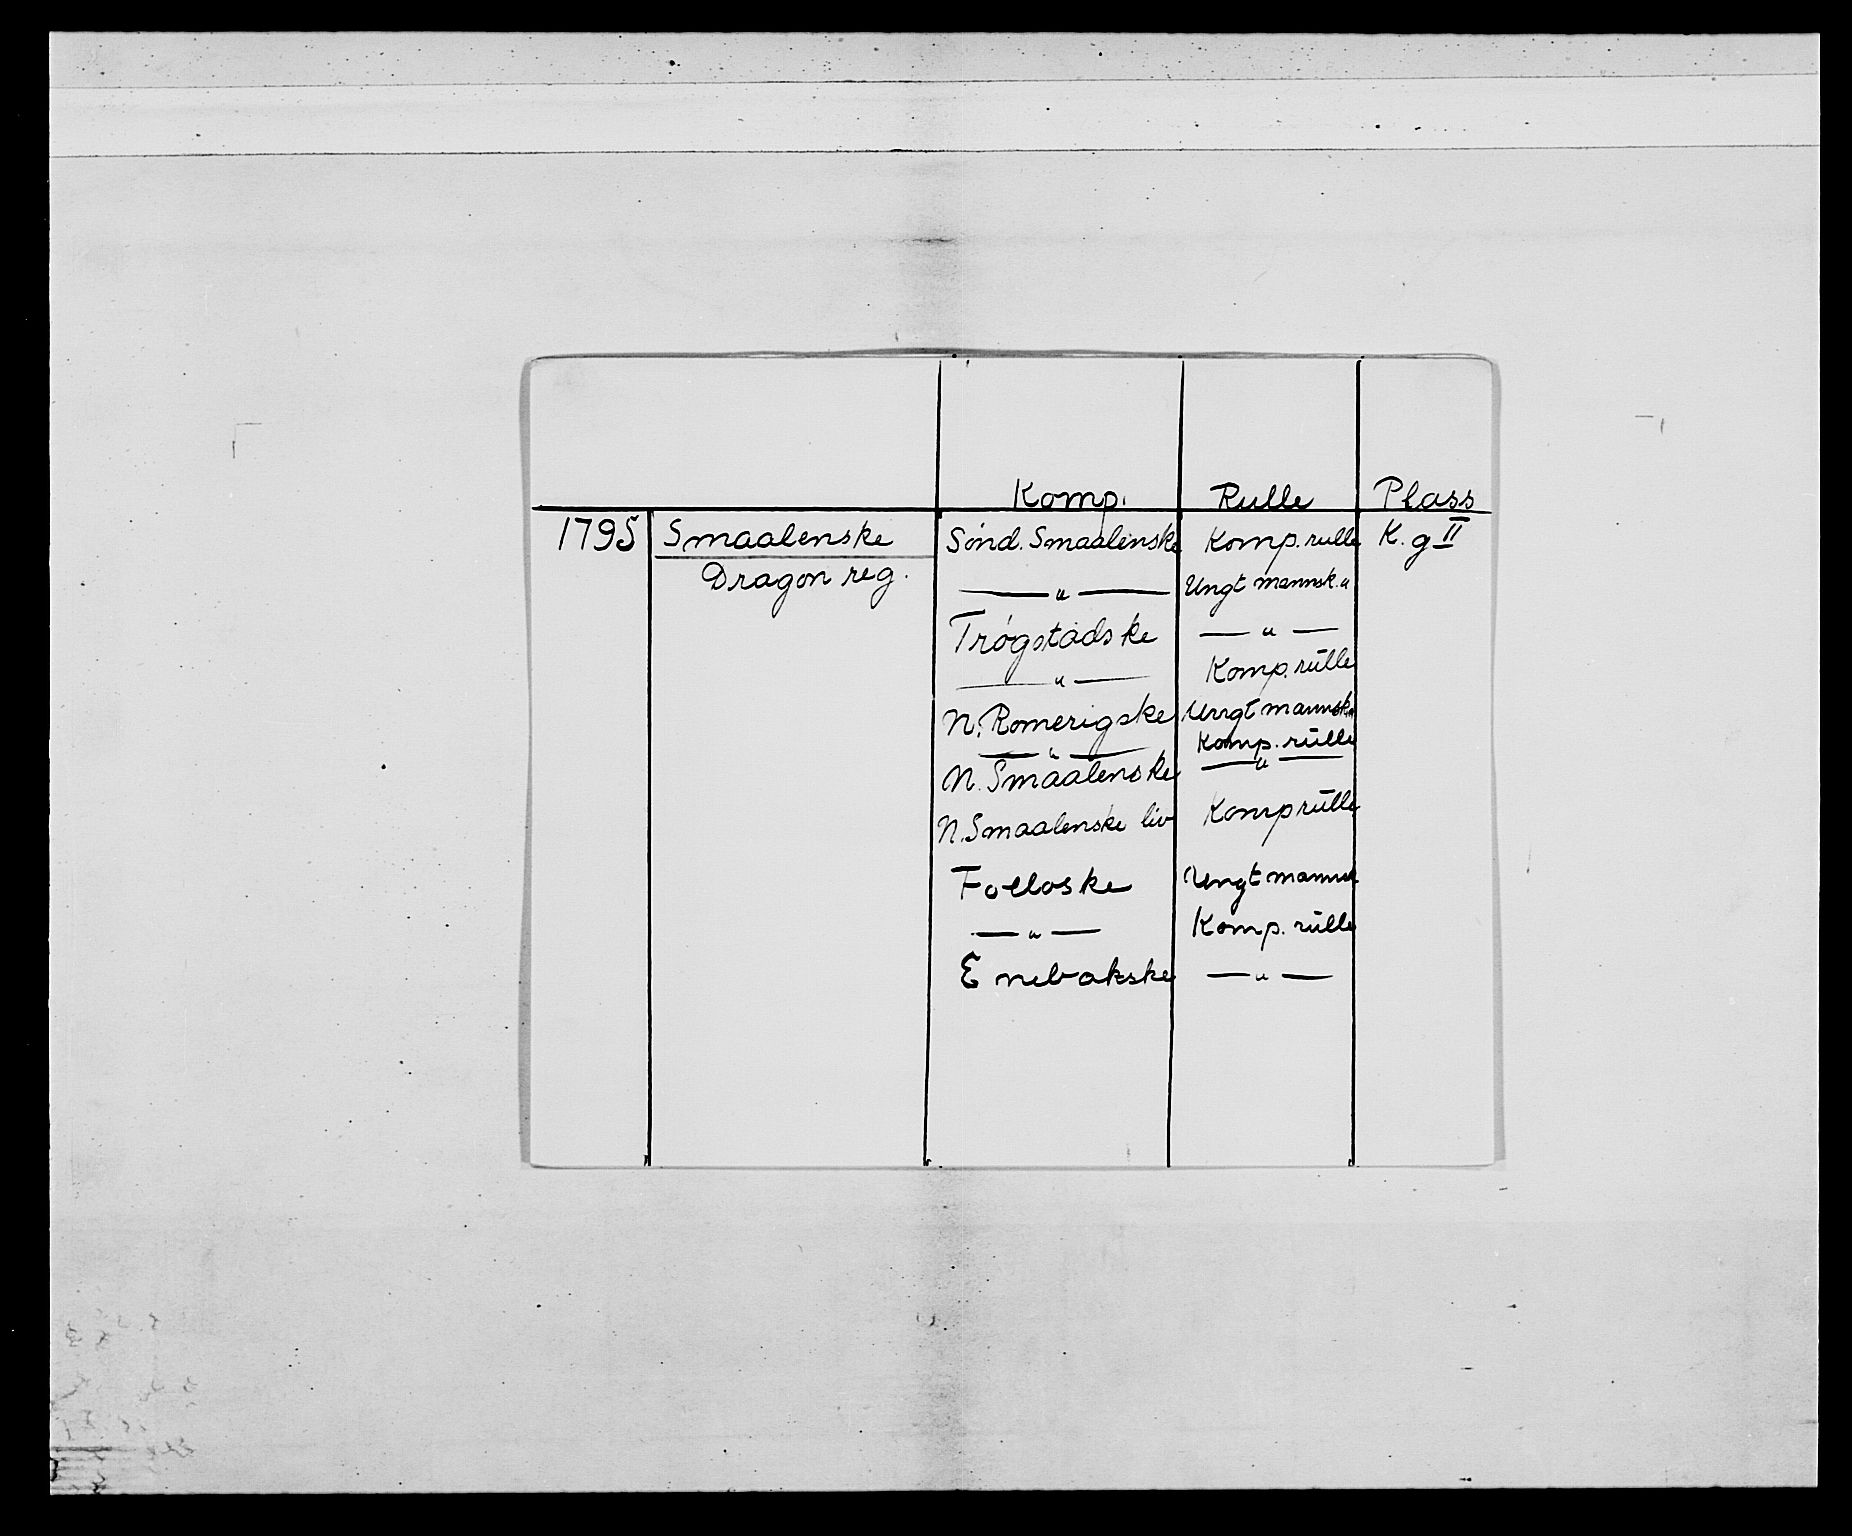 Komp. Rulle Plass
1795 Smaalenske Sönd. Smaalenske Komp. rulle K. g II
Dragon reg. — " — Ungt mannsk. "
Trögstadske — " —
— " — Komp. rulle
N. Romerigske Ungt mannsk. "
— " — Komp. rulle
N. Smaalenske — " —
N. Smaalenske liv Komp rulle
Folloske Ungt mannsk
— " — Komp. rulle
Enebakske — " —